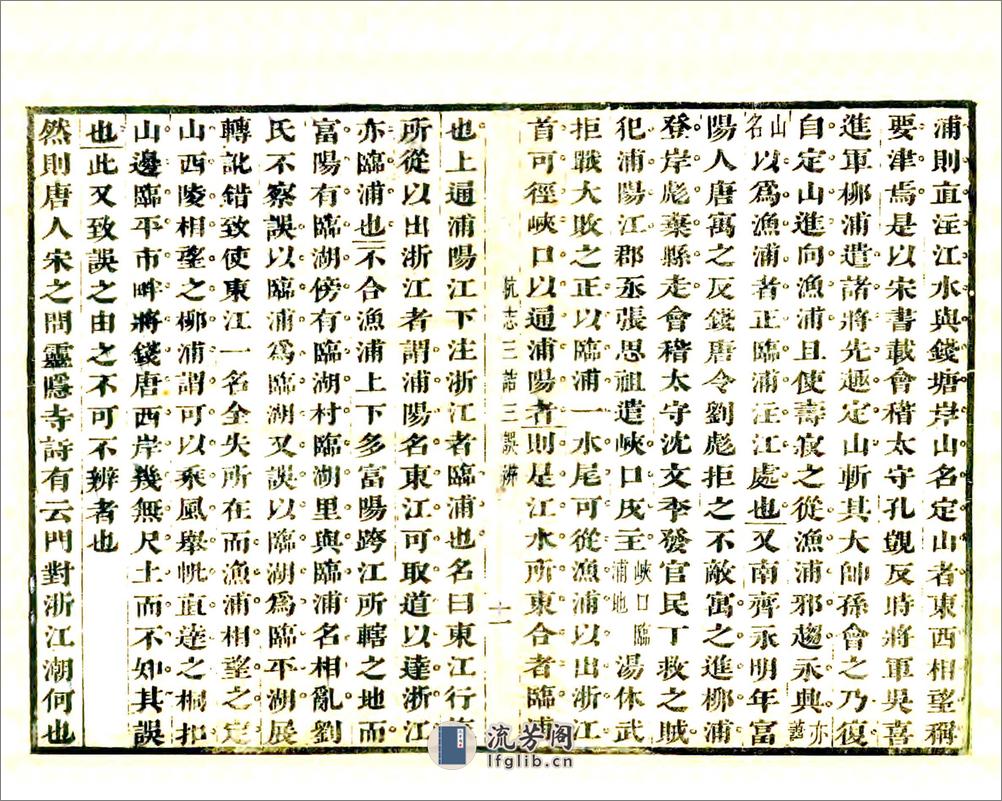 浦則直注江水與錢塘岸山名定山者東西相望稱
要津焉是以宋書載會稽太守孔覬反時將軍吳喜
進軍柳浦遣諸將先趣定山斬其大帥孫會之乃復
自定山進向漁浦且使壽寂之從漁浦邪趨永興蕭亦
山名以爲漁浦者正臨浦注江處也又南齊永明年富
陽人唐寓之反錢唐令劉彪拒之不敵寓之進柳浦
登岸彪棄縣走會稽太守沈文季發官民丁救之賊
犯浦陽江郡丞張思祖遣峽口戍主峽口臨浦地湯休武
拒戰大敗之正以臨浦一水尾可從漁浦以出浙江
首可徑峽口以通浦陽者則是江水所東合者臨浦
杭志三詰三誤辨 十一
也上通浦陽江下注浙江者臨浦也名曰東江行旅
所從以出浙江者謂浦陽名東江可取道以達浙江
亦臨浦也不合漁浦上下多富陽跨江所轄之地而
富陽有臨湖傍有臨湖村臨湖里與臨浦名相亂劉
氏不察誤以臨浦爲臨湖又誤以臨湖爲臨平湖展
轉訛錯致使東江一名全失所在而漁浦相望之定
山西陵相望之柳浦謂可以乘風舉帆直達之桐扣
山邊臨平市畔將錢唐西岸幾無尺土而不知其誤
也此又致誤之由之不可不辨者也
然則唐人宋之問靈隱寺詩有云門對浙江潮何也
流芳阁
lfglib.cn